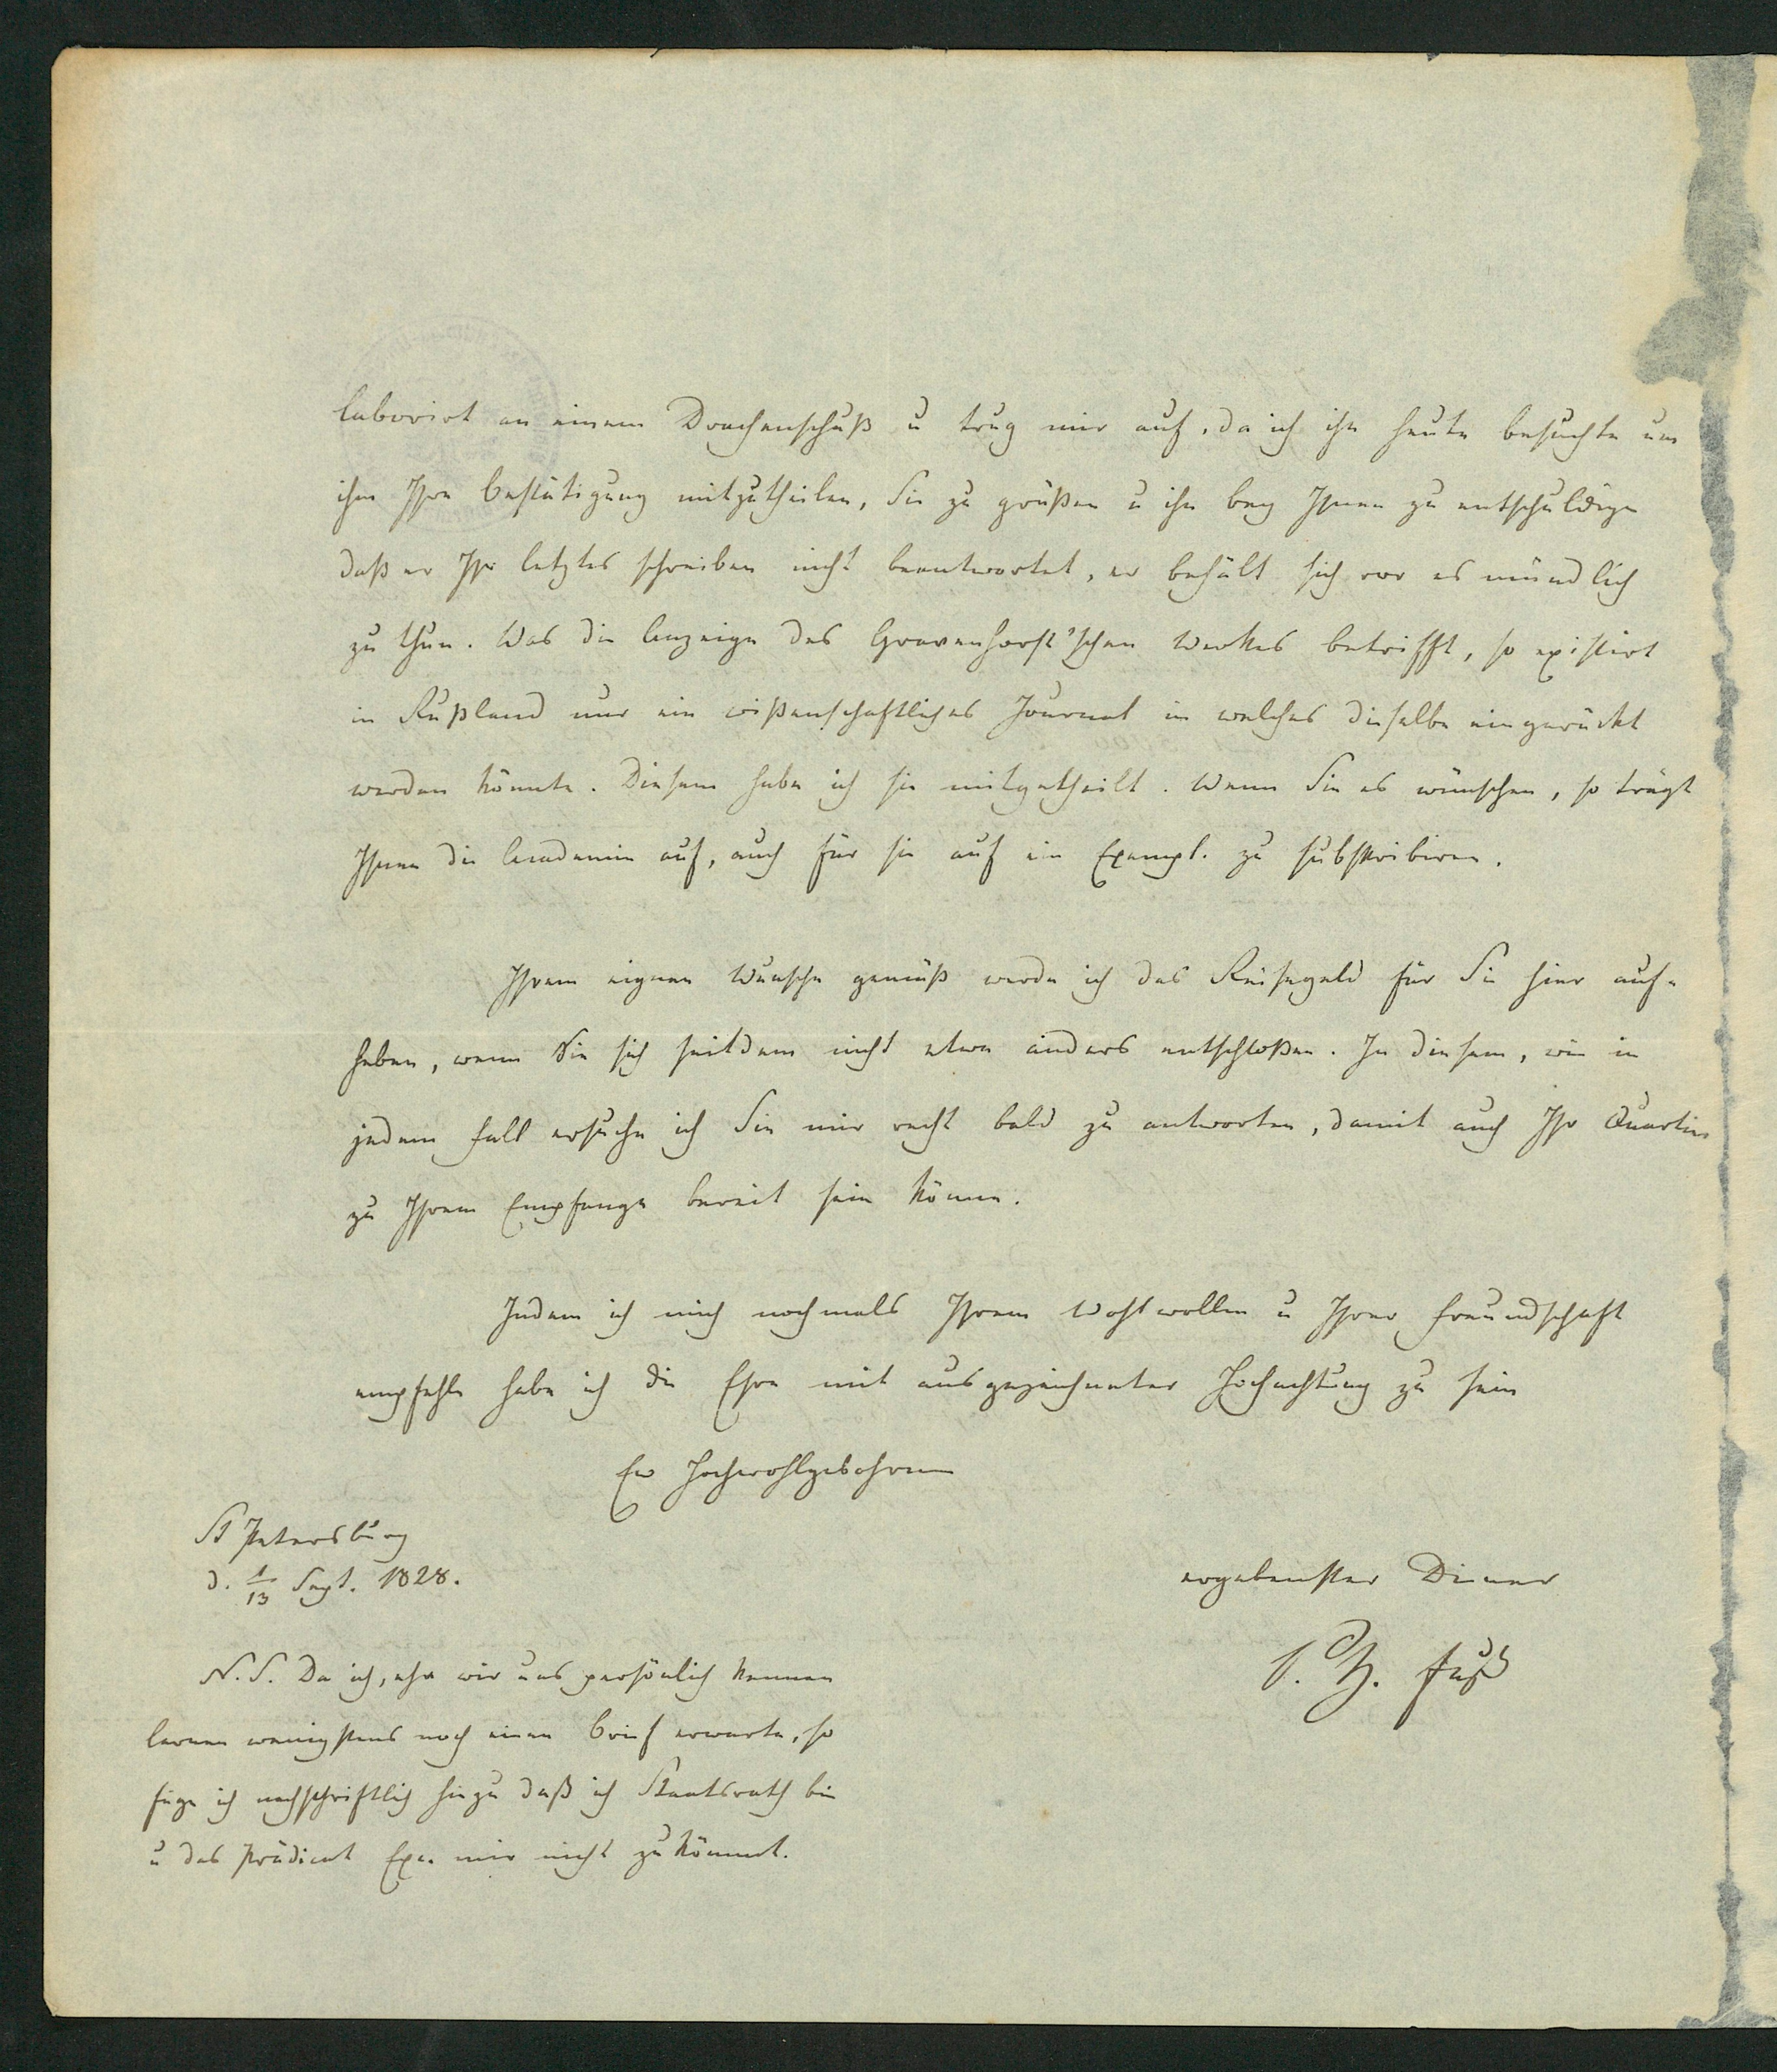 laborirt an einem Drachenschuß u trug mir auf, da ich ihn heute besuchte um
ihm Ihre Bestätigung mitzutheilen, Sie zu grüßen u ihn bey Ihnen zu entschuldigen
daß er Ihr letztes Schreiben nicht beantwortet, er behält sich vor es mündlich
zu thun. Was die Anzeige des Gravenhorst'schen Werkes betrifft, so existirt
in Rußland nur ein wißenschaftliches Journal in welches dieselbe eingerückt
werden könnte. Diesem habe ich sie mitgetheilt. Wenn Sie es wünschen, so trägt
Ihnen die Academie auf, auch für sie auf ein Exempl. zu subskribiren.
Ihrem eignen Wunsche gemäß werde ich das Reisegeld für Sie hier auf-
heben, wenn Sie sich seitdem nicht etwa anders entschloßen. In diesem, wie in
jedem Fall ersuche ich Sie mir recht bald zu antworten, damit auch Ihr Quartier
zu Ihrem Empfange bereit sein könne.
Indem ich mich nochmals Ihrem Wohlwollen u Ihrer Freundschaft
empfehle habe ich die Ehre mit ausgezeichneter Hochachtung zu sein
Ew Hochwohlgebohren
St Petersburg
d. 1/13 Sept. 1828.
ergebenster Diener
P. H. Fuß
N. S. Da ich, ehe wir uns persönlich kennen
lernen wenigstens noch einen Brief erwarte, so
füge ich nachschriftlich hinzu daß ich Staatsrath bin
u das Prädicat Exc. mir nicht zukömmt.